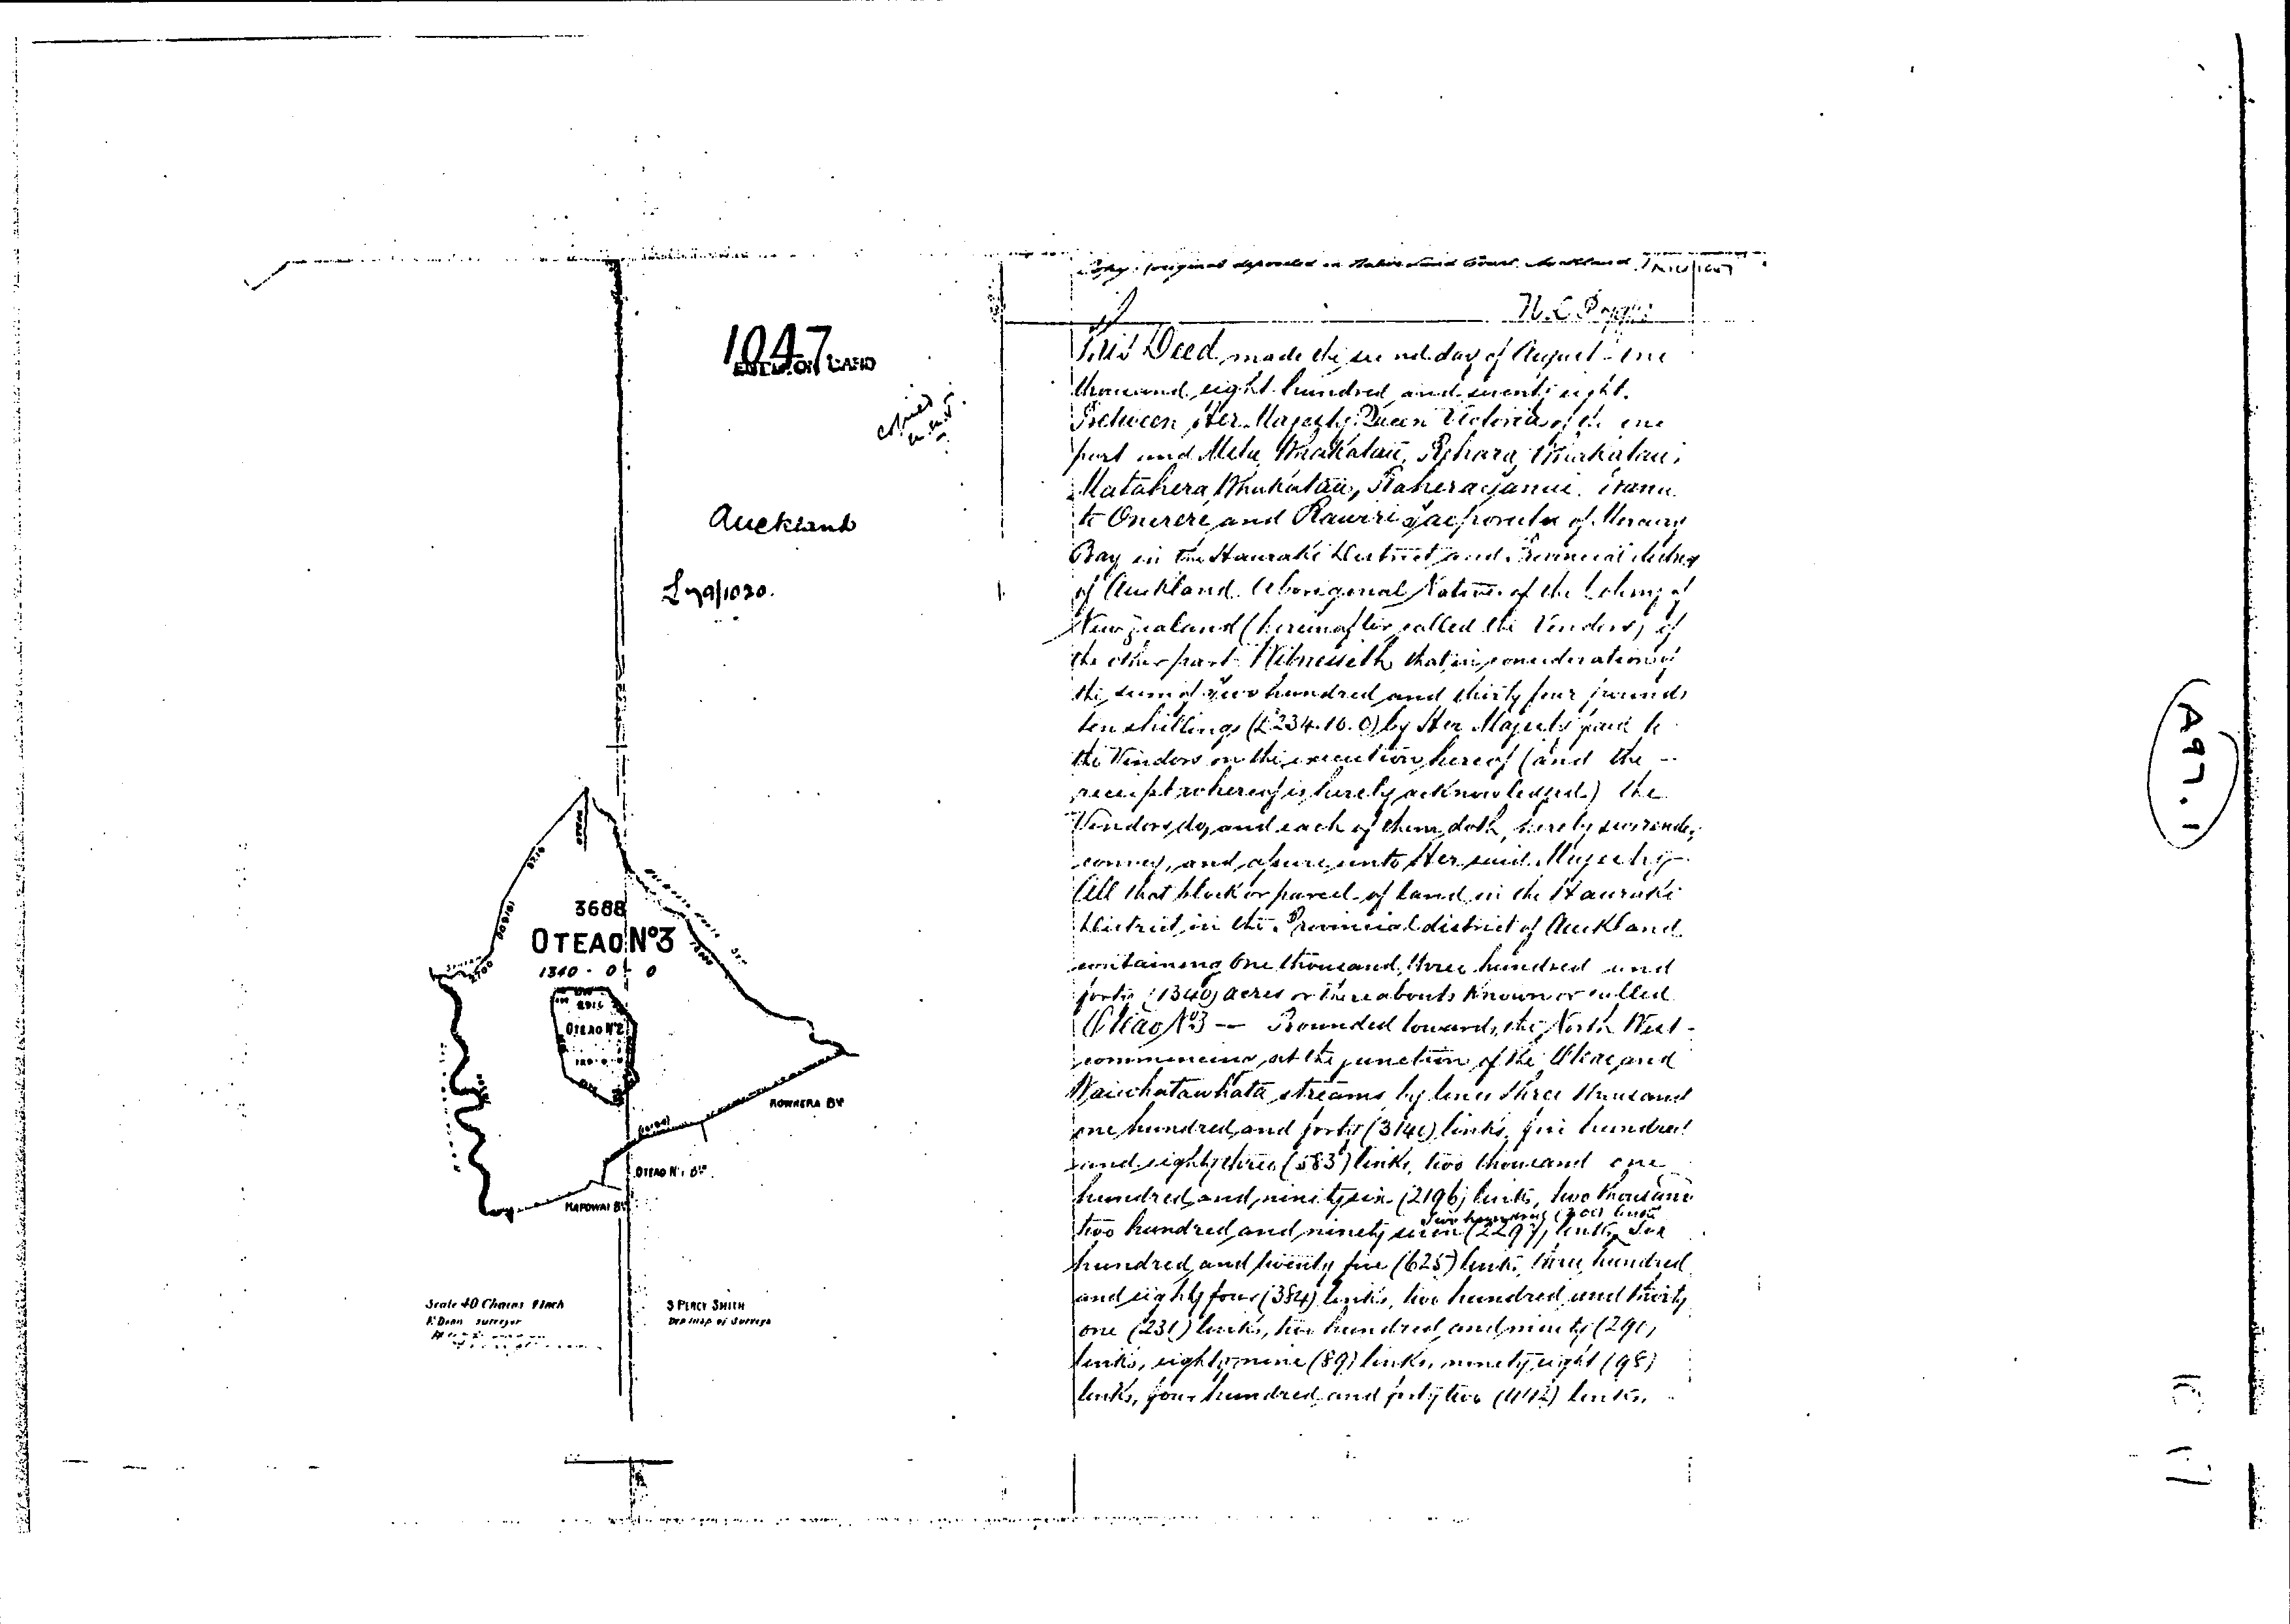 1047
Auckland
L79/1020.
3688
OTEAO Nº3
1340 - 0 - 0
OTEAO Nº2
ROWHERA BK
OTEAO Nº1 BK
KAPOWAI BK
Scale 40 Chains 1 Inch
Surveyor
S PERCY SMITH
Dep Insp of Surveys
Copy. Original deposited in Native Land Court, Auckland
This Deed made the second day of August one
thousand eight hundred and seventy eight.
Between Her Majesty Queen Victoria of the one
part and Meta Whakatau, Whakatau,
Matahera Whakatau,
te Onerere and Rawiri of Mercury
Bay in the Hauraki District and Provincial district
of Auckland Aboriginal Natives of the Colony of
New Zealand (hereinafter called the Vendors) of
the other part Witnesseth that in consideration of
the sum of two hundred and thirty four pounds
ten shillings (£234.10.0) by Her Majesty paid to
the Vendors on the execution hereof (and the –
receipt whereof is hereby acknowledged) the
Vendors do, and each of them doth, hereby surrender,
convey, and assure unto Her said Majesty –
All that block or parcel of land in the Hauraki
District in the Provincial district of Auckland
containing One thousand, three hundred and
forty (1340) acres or thereabouts known or called
Oteao Nº3 — Bounded towards the North West –
commencing at the junction of the Oteao and
Waiwhatawhata streams by lines three thousand
one hundred and forty (3140) links, five hundred
and eighty three (583) links, two thousand one
hundred and ninety six (2196) links, two thousand
two hundred (200) links
two hundred and ninety seven (2297) links, Six
hundred and twenty five (625) links, three hundred
and eighty four (384) links, two hundred and thirty
one (231) links, two hundred and ninety (290)
links, eighty nine (89) links, ninety eight (98)
links, four hundred and forty two (442) links,
A97.1